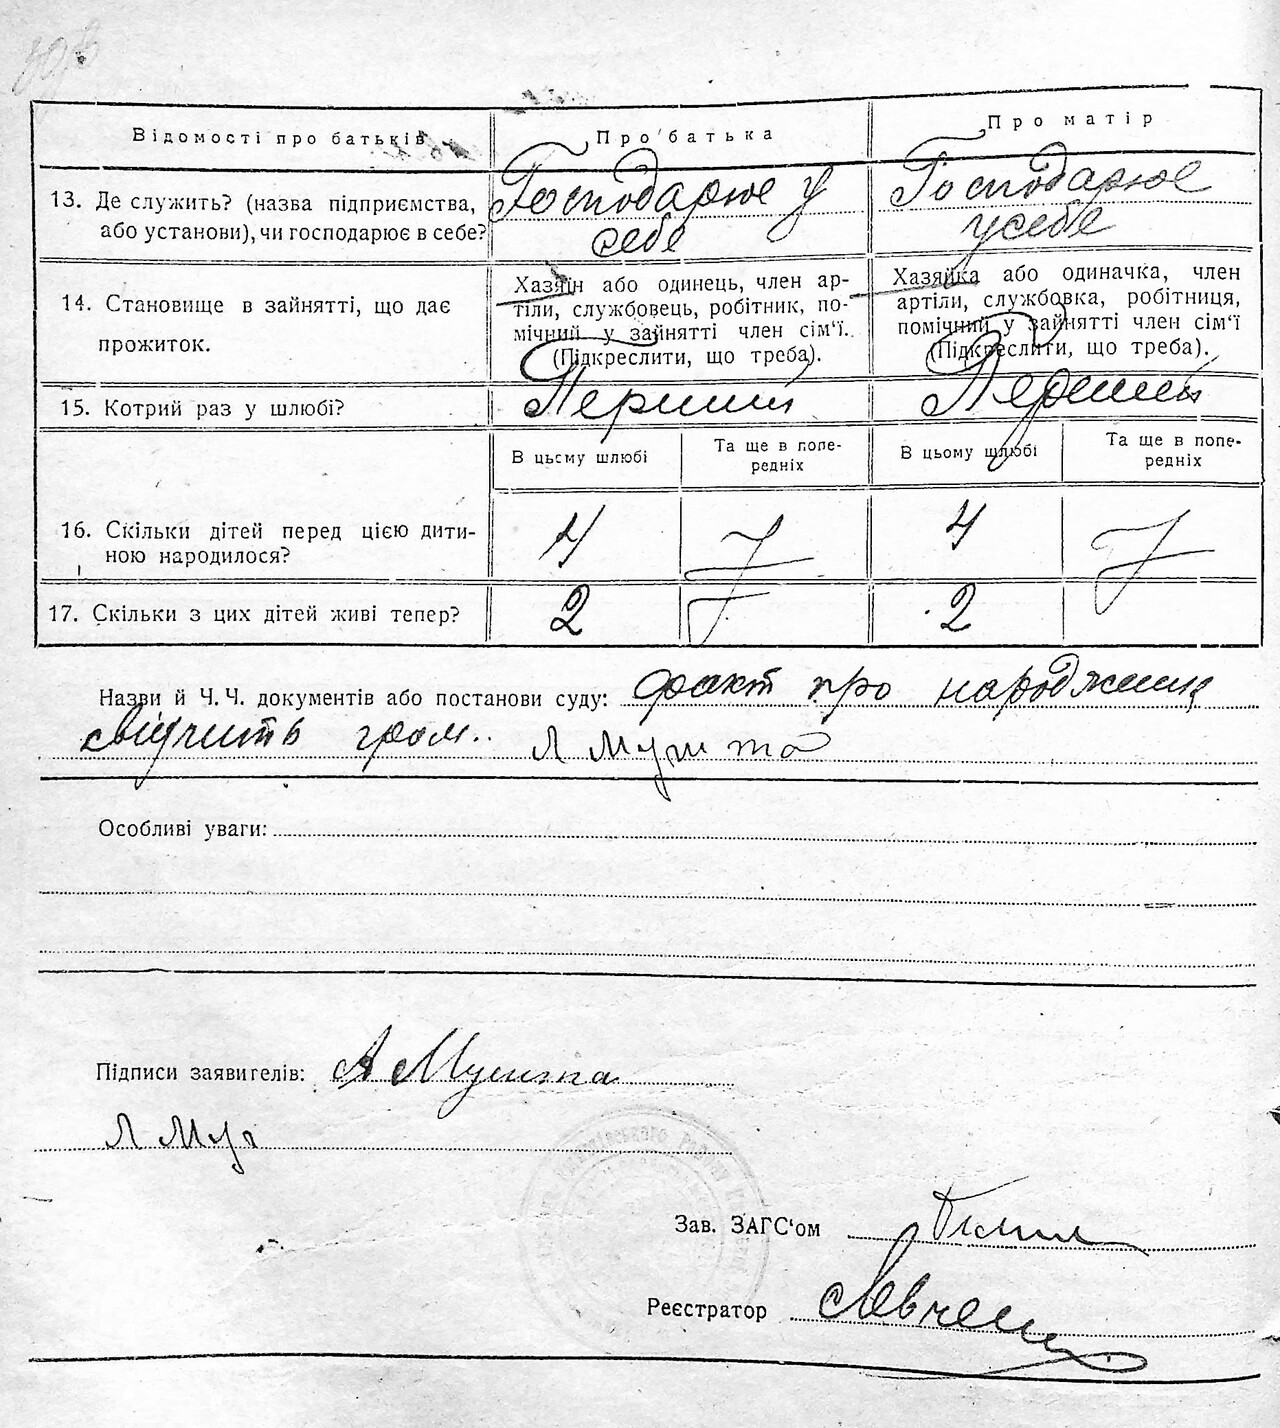 Відомості про батьків
Про батька
Про матір
13. Де служить? (назва підприємства,
або установи), чи господарює в себе?
Господарює у
себе
Господарює
у себе
14. Становище в зайнятті, що дає
прожиток.
Хазяїн або одинець, член ар-
тілі, службовець, робітник, по-
мічний у зайнятті член сім'ї.
(Підкреслити, що треба).
Хазяйка або одиначка, член
артіли, службовка, робітниця,
помічний у зайнятті член сім'ї
(Підкреслити, що треба).
15. Котрий раз у шлюбі?
Перший
Перший
В цьому шлюбі
Та ще в попе-
редніх
В цьому шлюбі
Та ще в попе-
редніх
16. Скільки дітей перед цією дити-
ною народилося?
4
4
17. Скільки з цих дітей живі тепер?
2
2
Назви й Ч. Ч. документів або постанови суду: факт про народження
свідчить гром. Л Мушта
Особливі уваги:
Підписи заявителів: А Мушта
Л Муш
Зав. ЗАГС'ом
Реєстратор